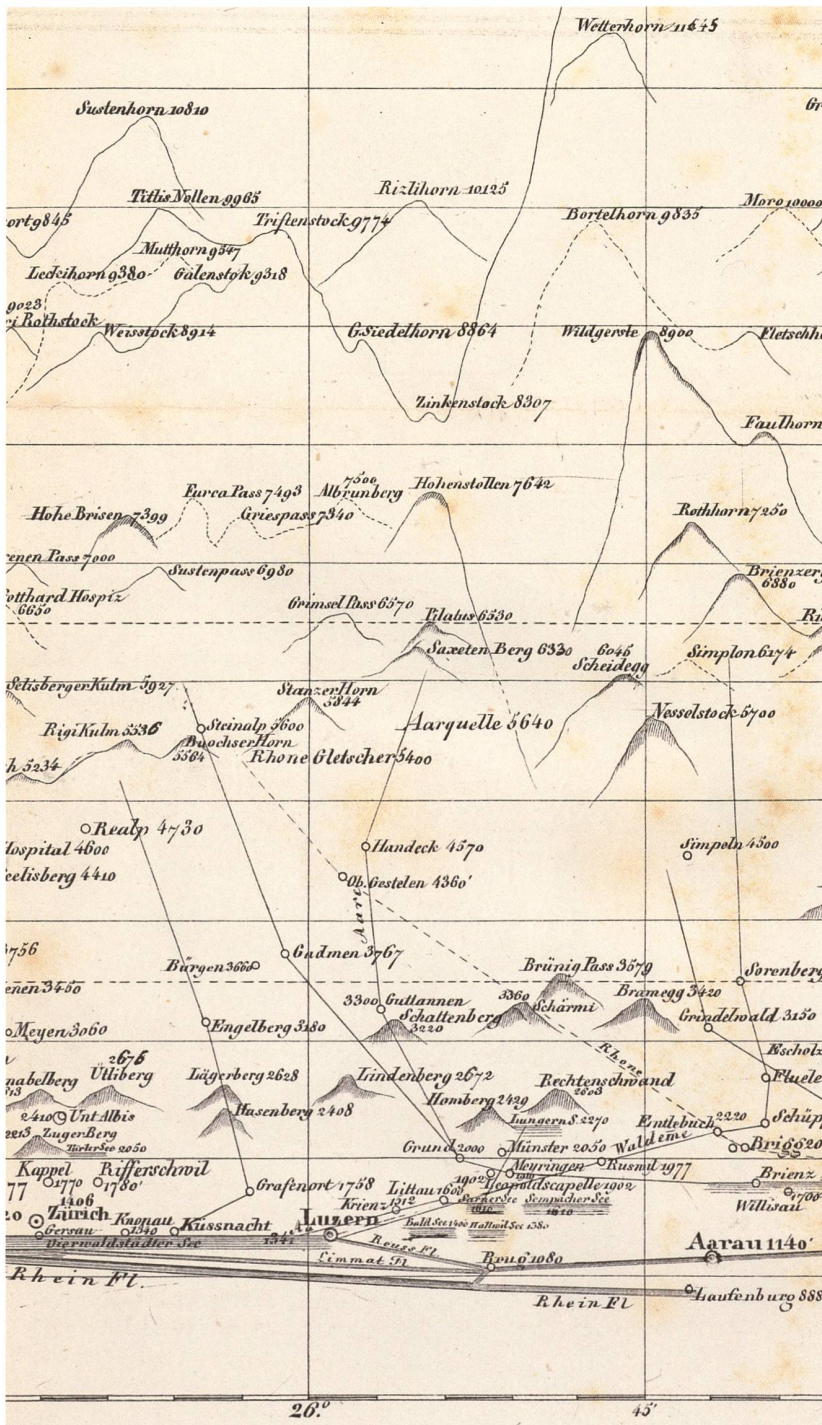 Wetterhorn 11645
Sustenhorn 10810
Titlis Nollen 9965
Rizlihorn 10125
Moro 10000
ort 9845
Triftenstock 9774
Bortelhorn 9835
Mutthorn 9547
Leckihorn 9380
Galenstok 9318
9023
ri Rothstock
Weisstock 8914
G. Siedelhorn 8864
Wildgerste 8900
Fletschh
Zinkenstock 8307
Faulhorn
Furca Pass 7493
7500
Albrunberg
Hohenstollen 7642
Hohe Brisen 7399
Griespass 7340
Rothhorn 7250
enen Pass 7000
Sustenpass 6980
Brienzer
6880
otthard Hospiz
6650
Grimsel Pass 6570
Pilatus 6530
Ri
Saxeten Berg 6330
6045
Scheidegg
Simplon 6174
Selisberger Kulm 5927
Stanzer Horn
5844
Rigi Kulm 5536
Steinalp 5600
Aarquelle 5640
Nesselstock 5700
Buochser Horn
5564
h 5234
Rhone Gletscher 5400
Realp 4730
Hospital 4600
Handeck 4570
Simpeln 4500
eelisberg 4410
Ob. Gestelen 4360'
Aare
3756
Gadmen 3767
Bürgen 3660
Brünig Pass 3579
enen 3450
Sorenberg
3300 Guttannen
3360
Schärmi
Bramegg 3420
Meyen 3060
Engelberg 3180
Schattenberg
3220
Grindelwald 3150
Rhone
Escholz
2676
nabelberg
Ütliberg
Lägerberg 2628
Lindenberg 2672
Rechtenschwand
2603
Fluele
2410 Unt Albis
Hasenberg 2408
Homberg 2429
Lungern S. 2270
Entlebuch 2220
Schüp
2213 Zuger Berg
Türler See 2050
Grund 2000
Münster 2050
Waldeme
Brigg 20
Kappel
1770
Rifferschwil
1780'
Grafenort 1758
Meyringen
Rusmil 1977
1902
Leopoldscapelle 1902
Brienz
77
1406
Littau 1600
Sarner See
1610
Sempacher See
1610
1700
Willisau
20
Zürich
Knonau
1340
Küssnacht
Krienz 1612
Gersau
Vierwaldstädter See
1341
Luzern
Bald See 1400
Hallwil See 1380
Reuss Fl
Limmat Fl
Brug 1080
Aarau 1140'
Rhein Fl.
Rhein Fl
Laufenburg 888
26.°
45'